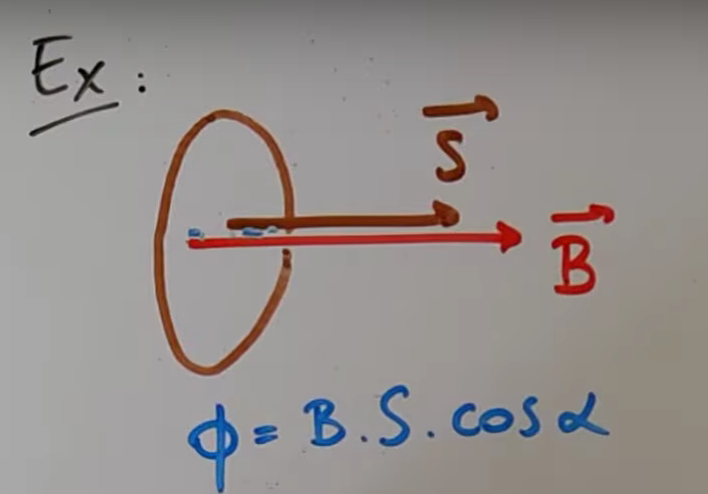 Ex:
S
B
ϕ = B.S.cos α